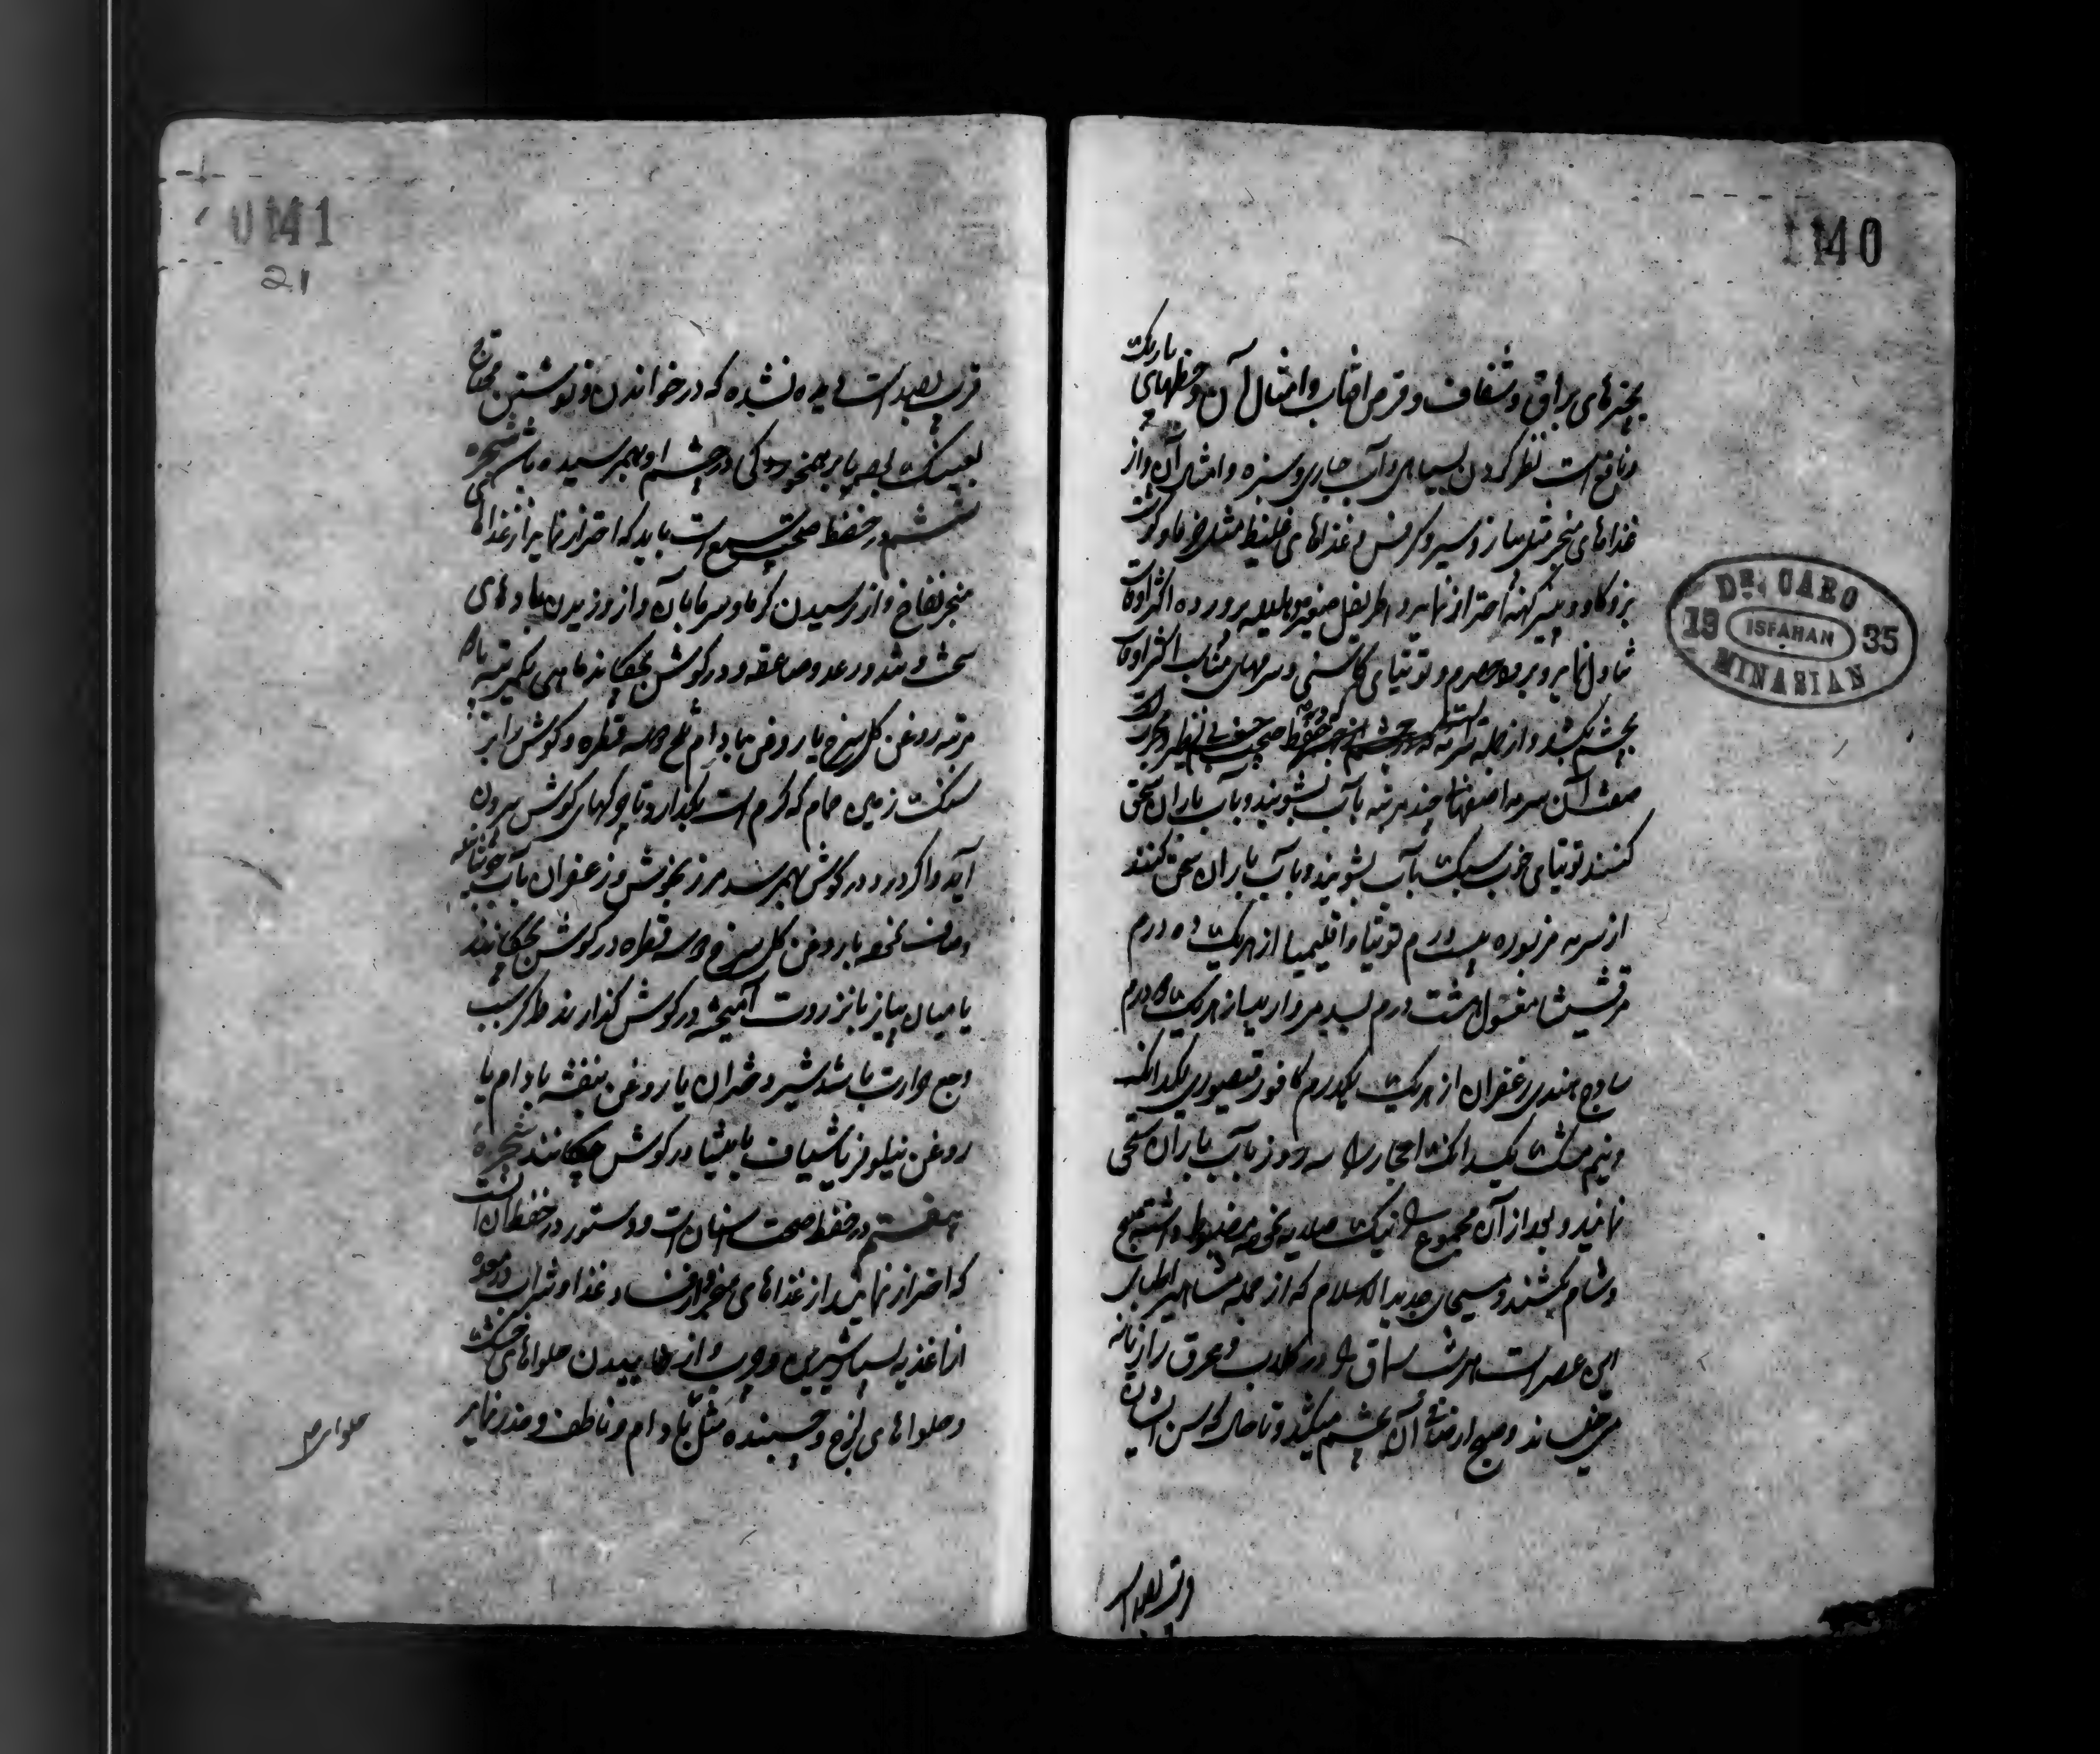 1140
بچیزهای براق و شفاف و قرص افتاب و امثال آن و خطهای باریک
و نافع است نظر کردن بسیاهی و آب جاری و سبزه و امثال آن و از
غذاهای مبخر مثل پیاز و سیر و کرفس و غذاهای غلیظ مثل خرما و کوشت
بز و کاو و پنیر کهنه احتراز نماید و اطریفل صغیر و هلیله پرورده اکثر اوقات
تناول نماید و برود حصرم و توتیای کاسنی و سرمهای مناسب اکثر اوقات
بچشم بکشد و از جمله سرمه حفظ صحت
صفت آن سرمه اصفهانی چند مرتبه بآب بشویند و بآب باران سحق
کنند توتیای خوب سبک بآب بشویند و بآب باران سحق کنند
از سرمه مزبوره بیست درم توتیا و اقلیمیا از هریک ده درم
مرقشیشا مغسول هشت درم بسد مروارید از هریک درم
ساذج هندی زعفران از هریک یکدرم کافور قیصوری یکدانک
و نیم مشک یکدانک احجار را سه روز بآب باران سحق
نمایند و بعد از آن مجموع را نیک صلایه نموده مضبوط داشته صبح
و شام بکشند و مسیحای جدید الاسلام که از جمله مشاهیر اطبای
این عصر است هر شب سماق را در کلاب و عرق رازیانه
می خیساند و صبح از صافی آن بچشم میکشد و تا حال که سن ایشان
DR. CARO
19 ISFAHAN 35
MINASIAN
0141
21
قریب بصد است دیده نشده که در خواندن و نوشتن محتاج
بعینک باشد یا برهمخوردکی در چشم او بهم رسیده باشد شجره
ششم در حفظ صحت سمع است باید که احتراز نماید از غذاهای
مبخر نفاخ و از رسیدن کرما و سرما بآن و از وزیدن بادهای
سخت و تند و رعد و صاعقه و در کوش بچکاند ماهی یکمرتبه یا دو
مرتبه روغن کل سرخ یا روغن بادام تلخ دو سه قطره و کوش را بر
سنک زمین حمام که کرم است بکذارد تا چرکهای کوش بیرون
آید و اکر درد در کوش بهم رسد مرزنجوش و زعفران بآب جوشانده
و صاف نموده با روغن کل سرخ دو سه قطره در کوش بچکانند
یا میان پیاز با نزروت آمیخته در کوش کذارند و اکر سبب
وجع حرارت باشد شیر دختران یا روغن بنفشه بادام یا
روغن نیلوفر یا شیاف مامیثا در کوش چکانند شجرهٔ
هفتم در حفظ صحت اسنان است و دستور در حفظ آن است
که احتراز نمایند از غذاهای مبخر و از فساد غذا و شراب در معده
از اغذیه بسیار شیرین و چرب و از خاییدن حلواهای خشک
و حلواهای لزج و چسبنده مثل بادام و ناطف و حذر نماید